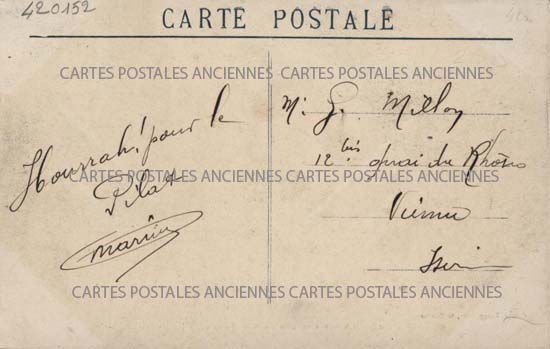 420152
CARTE POSTALE
CARTES POSTALES ANCIENNES CARTES POSTALES ANCIENNES
Hourrah! pour le
Pilat
Marius
M. G. Milloy
12 bis quai du Rhône
Vienne
Isère
CARTES POSTALES ANCIENNES CARTES POSTALES ANCIENNES
CARTES POSTALES ANCIENNES CARTES POSTALES ANCIENNES